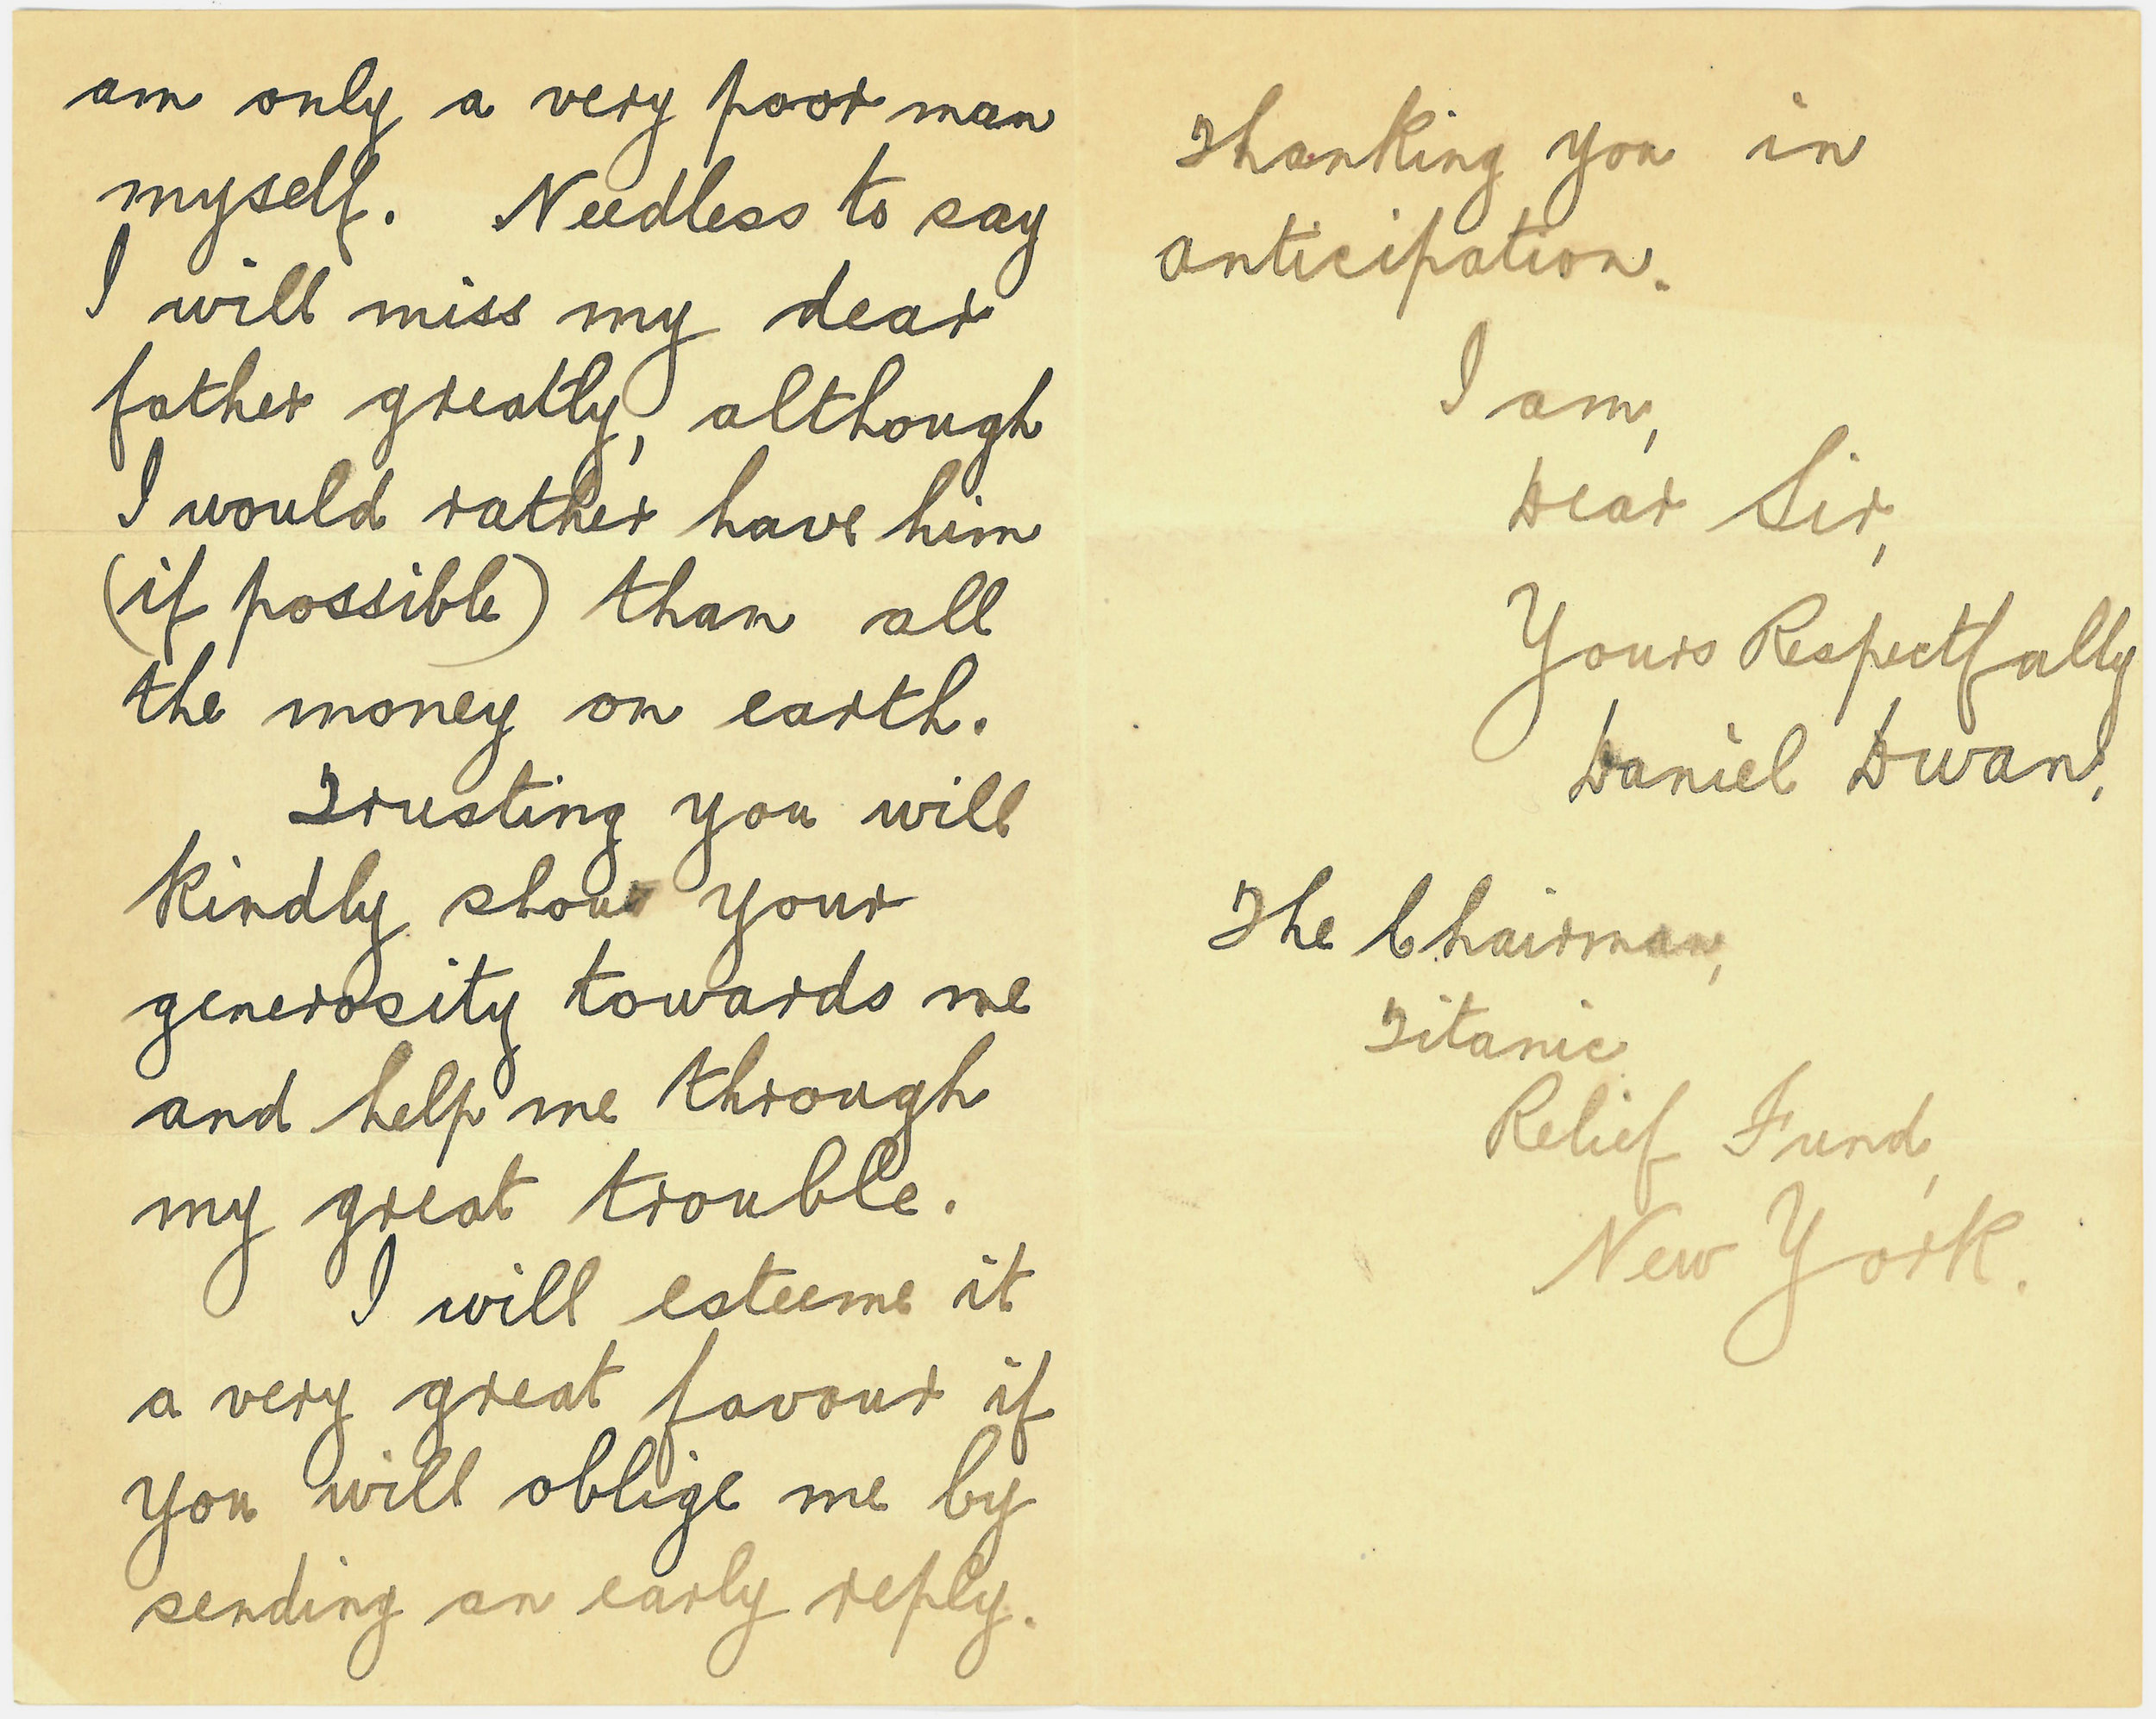 am only a very poor man
myself. Needless to say
I will miss my dear
father greatly, although
I would rather have him
(if possible) than all
the money on earth.
Trusting you will
kindly show your
generosity towards me
and help me through
my great trouble.
I will esteeme it
a very great favour if
you will oblige me by
sending an early reply.
Thanking you in
anticipation.
I am,
Dear Sir,
Yours Respectfully
Daniel Dwan,
The Chairman,
Titanic
Relief Fund,
New York.